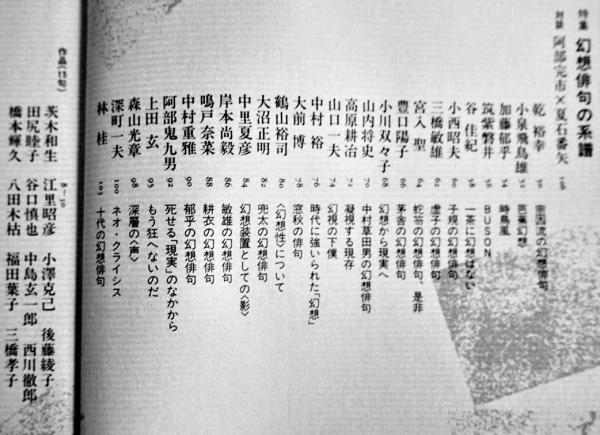 特集 幻想俳句の系譜
対談 阿部完市×夏石番矢 108
乾 裕幸 50 宗因流の幻想俳句
小泉飛鳥雄 52 芭蕉幻想
加藤郁乎 54 時鳥風
筑紫磐井 56 BUSON
谷 佳紀 58 一茶に幻想はない
小西昭夫 60 子規の幻想俳句
三橋敏雄 62 虚子の幻想俳句
宮入 聖 64 蛇笏の幻想俳句、是非
豊口陽子 66 茅舎の幻想俳句
小川双々子 68 幻想から現実へ
山内将史 70 中村草田男の幻想俳句
高原耕治 72 凝視する現存
山口一夫 74 幻視の下僕
中村 裕 76 時代に強いられた「幻想」
大前 博 78 窓秋の俳句
鶴山裕司 80 〈幻想性〉について
大沼正明 82 兜太の幻想俳句
中里夏彦 84 幻想装置としての〈影〉
岸本尚毅 86 敏雄の幻想俳句
鳴戸奈菜 88 耕衣の幻想俳句
中村重雅 90 郁乎の幻想俳句
阿部鬼九男 92 死せる「現実」のなかから
上田 玄 95 もう狂へないのだ
森山光章 98 深層の〈声〉
深町一夫 100 ネオ・クライシス
林 桂 103 十代の幻想俳句
作品(15句) 8—30
茨木和生 江里昭彦 小澤克己 後藤綾子
田尻睦子 谷口慎也 中島玄一郎 西川徹郎
橋本輝久 八田木枯 福田葉子 三橋孝子